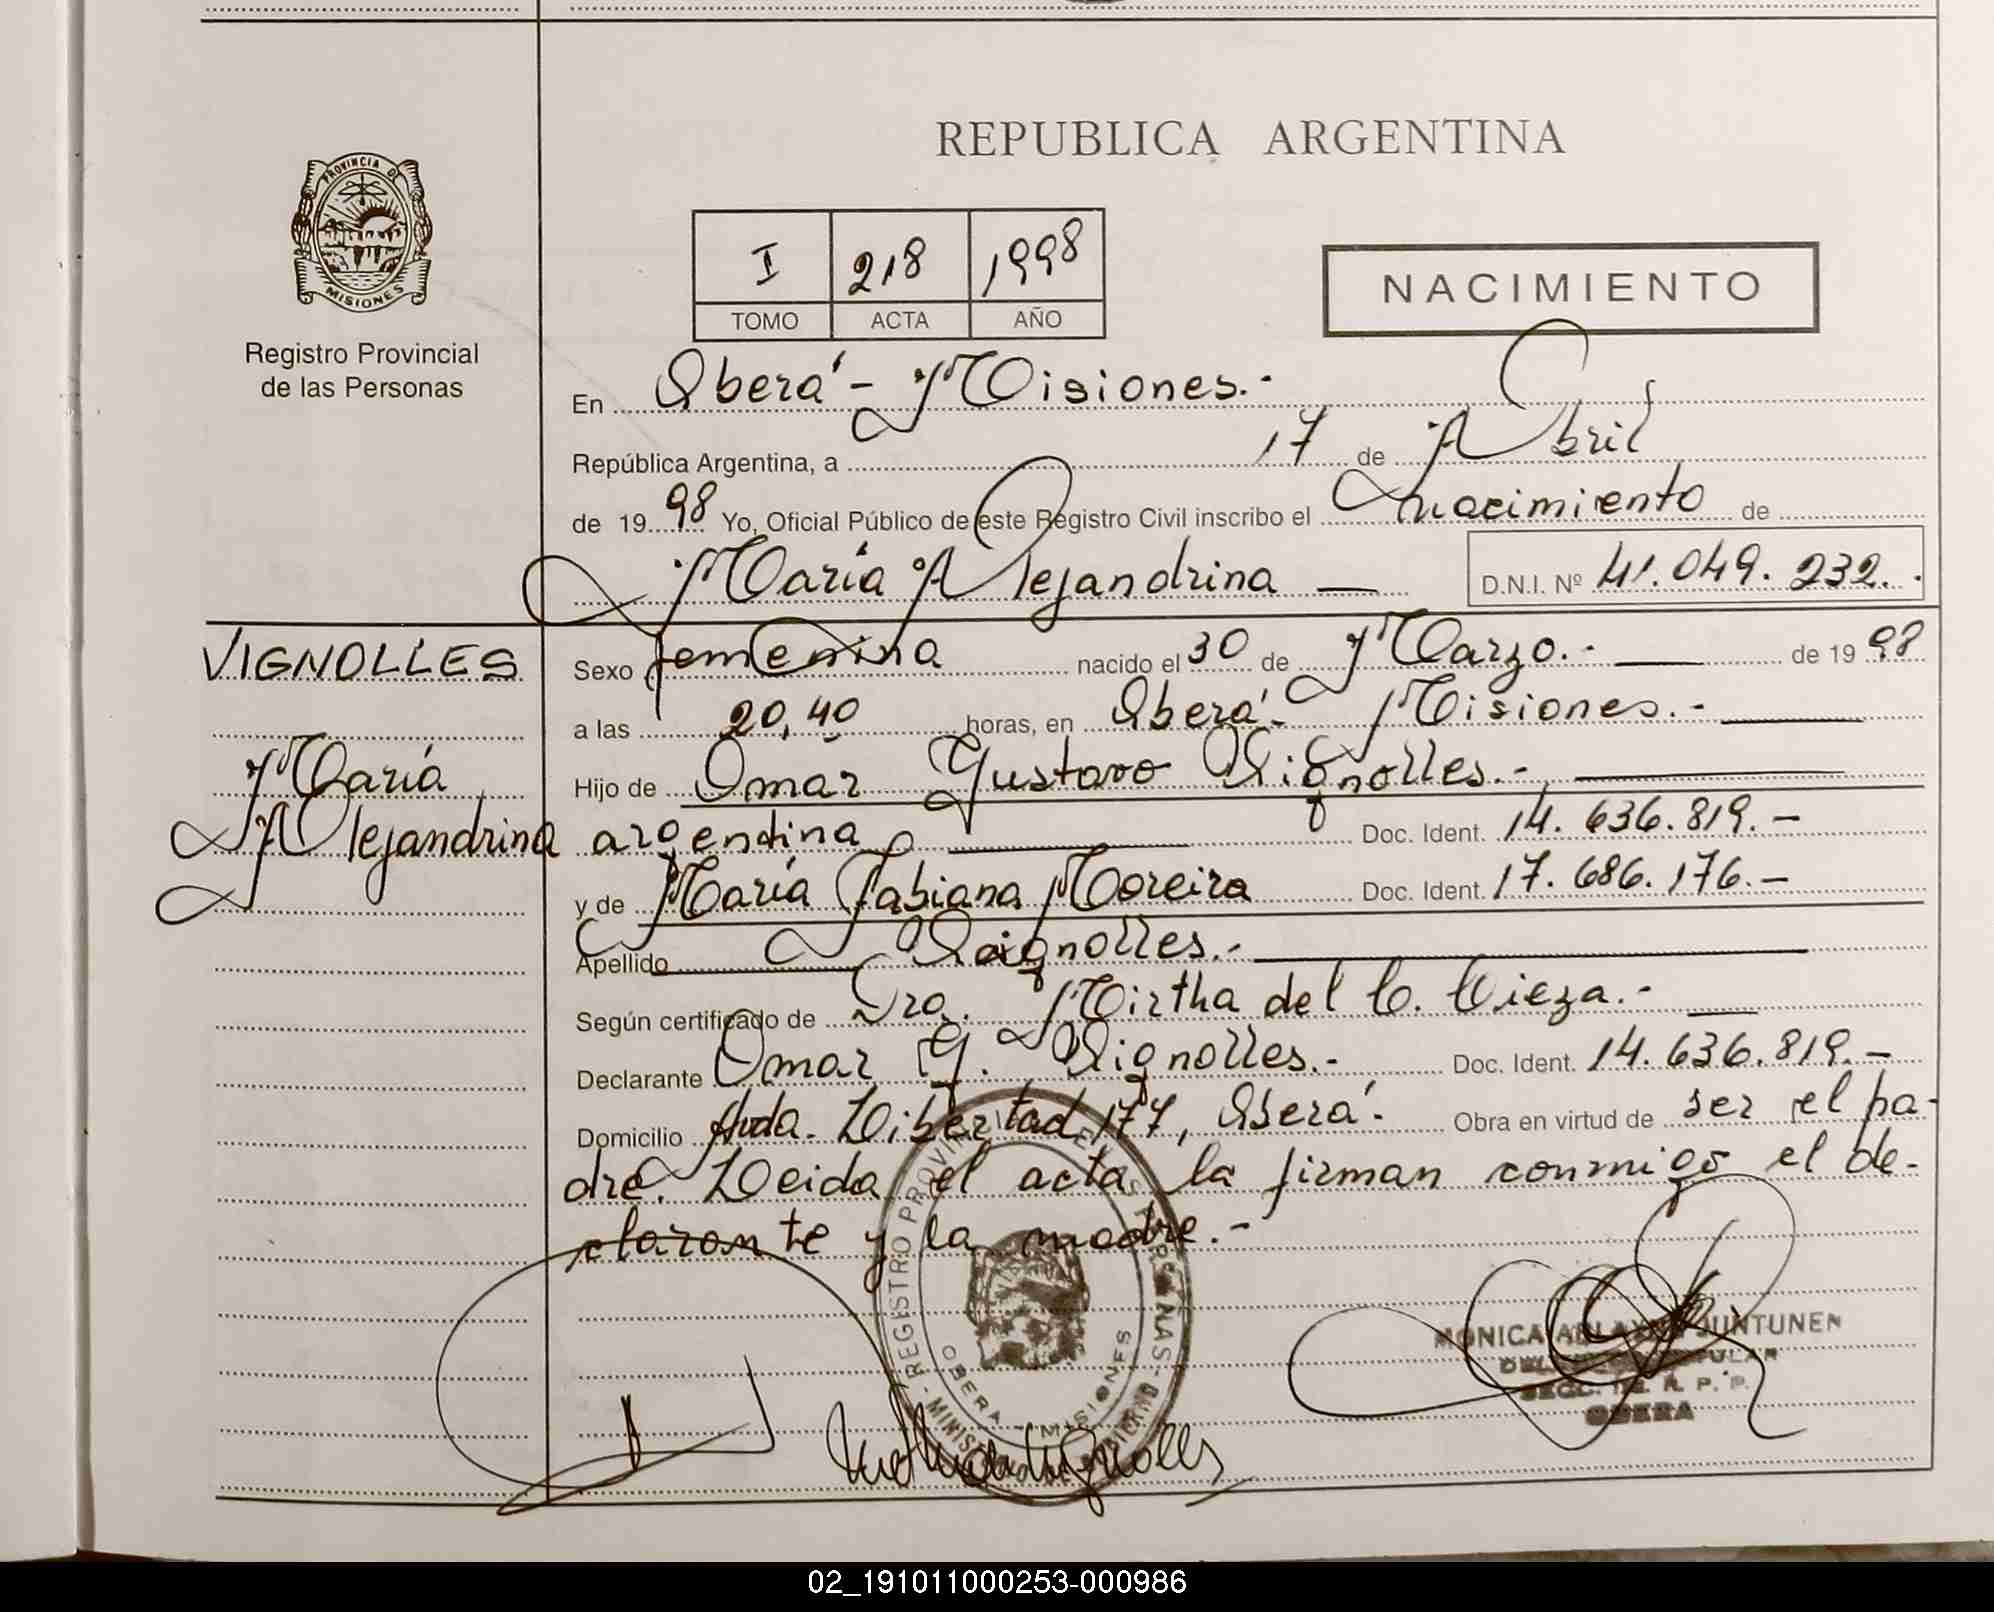 REPUBLICA ARGENTINA
PROVINCIA DE
MISIONES
Registro Provincial
de las Personas
I 218 1998
TOMO ACTA AÑO
NACIMIENTO
En Oberá - Misiones.-
República Argentina, a 17 de Abril
de 1998 Yo, Oficial Público de este Registro Civil inscribo el nacimiento de
María Alejandrina — D.N.I. Nº 41.049.232.
VIGNOLLES
María
Alejandrina
Sexo femenina nacido el 30 de Marzo.- de 1998
a las 20,40 horas, en Oberá - Misiones.-
Hijo de Omar Gustavo Vignolles.-
argentina Doc. Ident. 14.636.819.-
y de María Fabiana Moreira Doc. Ident. 17.686.176.-
Apellido Vignolles.-
Según certificado de Dra. Mirtha del C. Cieza.-
Declarante Omar G. Vignolles.- Doc. Ident. 14.636.819.-
Domicilio Avda. Libertad 177, Oberá.- Obra en virtud de ser el pa-
dre. Leída el acta la firman conmigo el de-
clarante y la madre.-
REGISTRO PROVINCIAL DE LAS PERSONAS
OBERA MISIONES
MONICA JUNTUNEN
OBERA
02_191011000253-000986